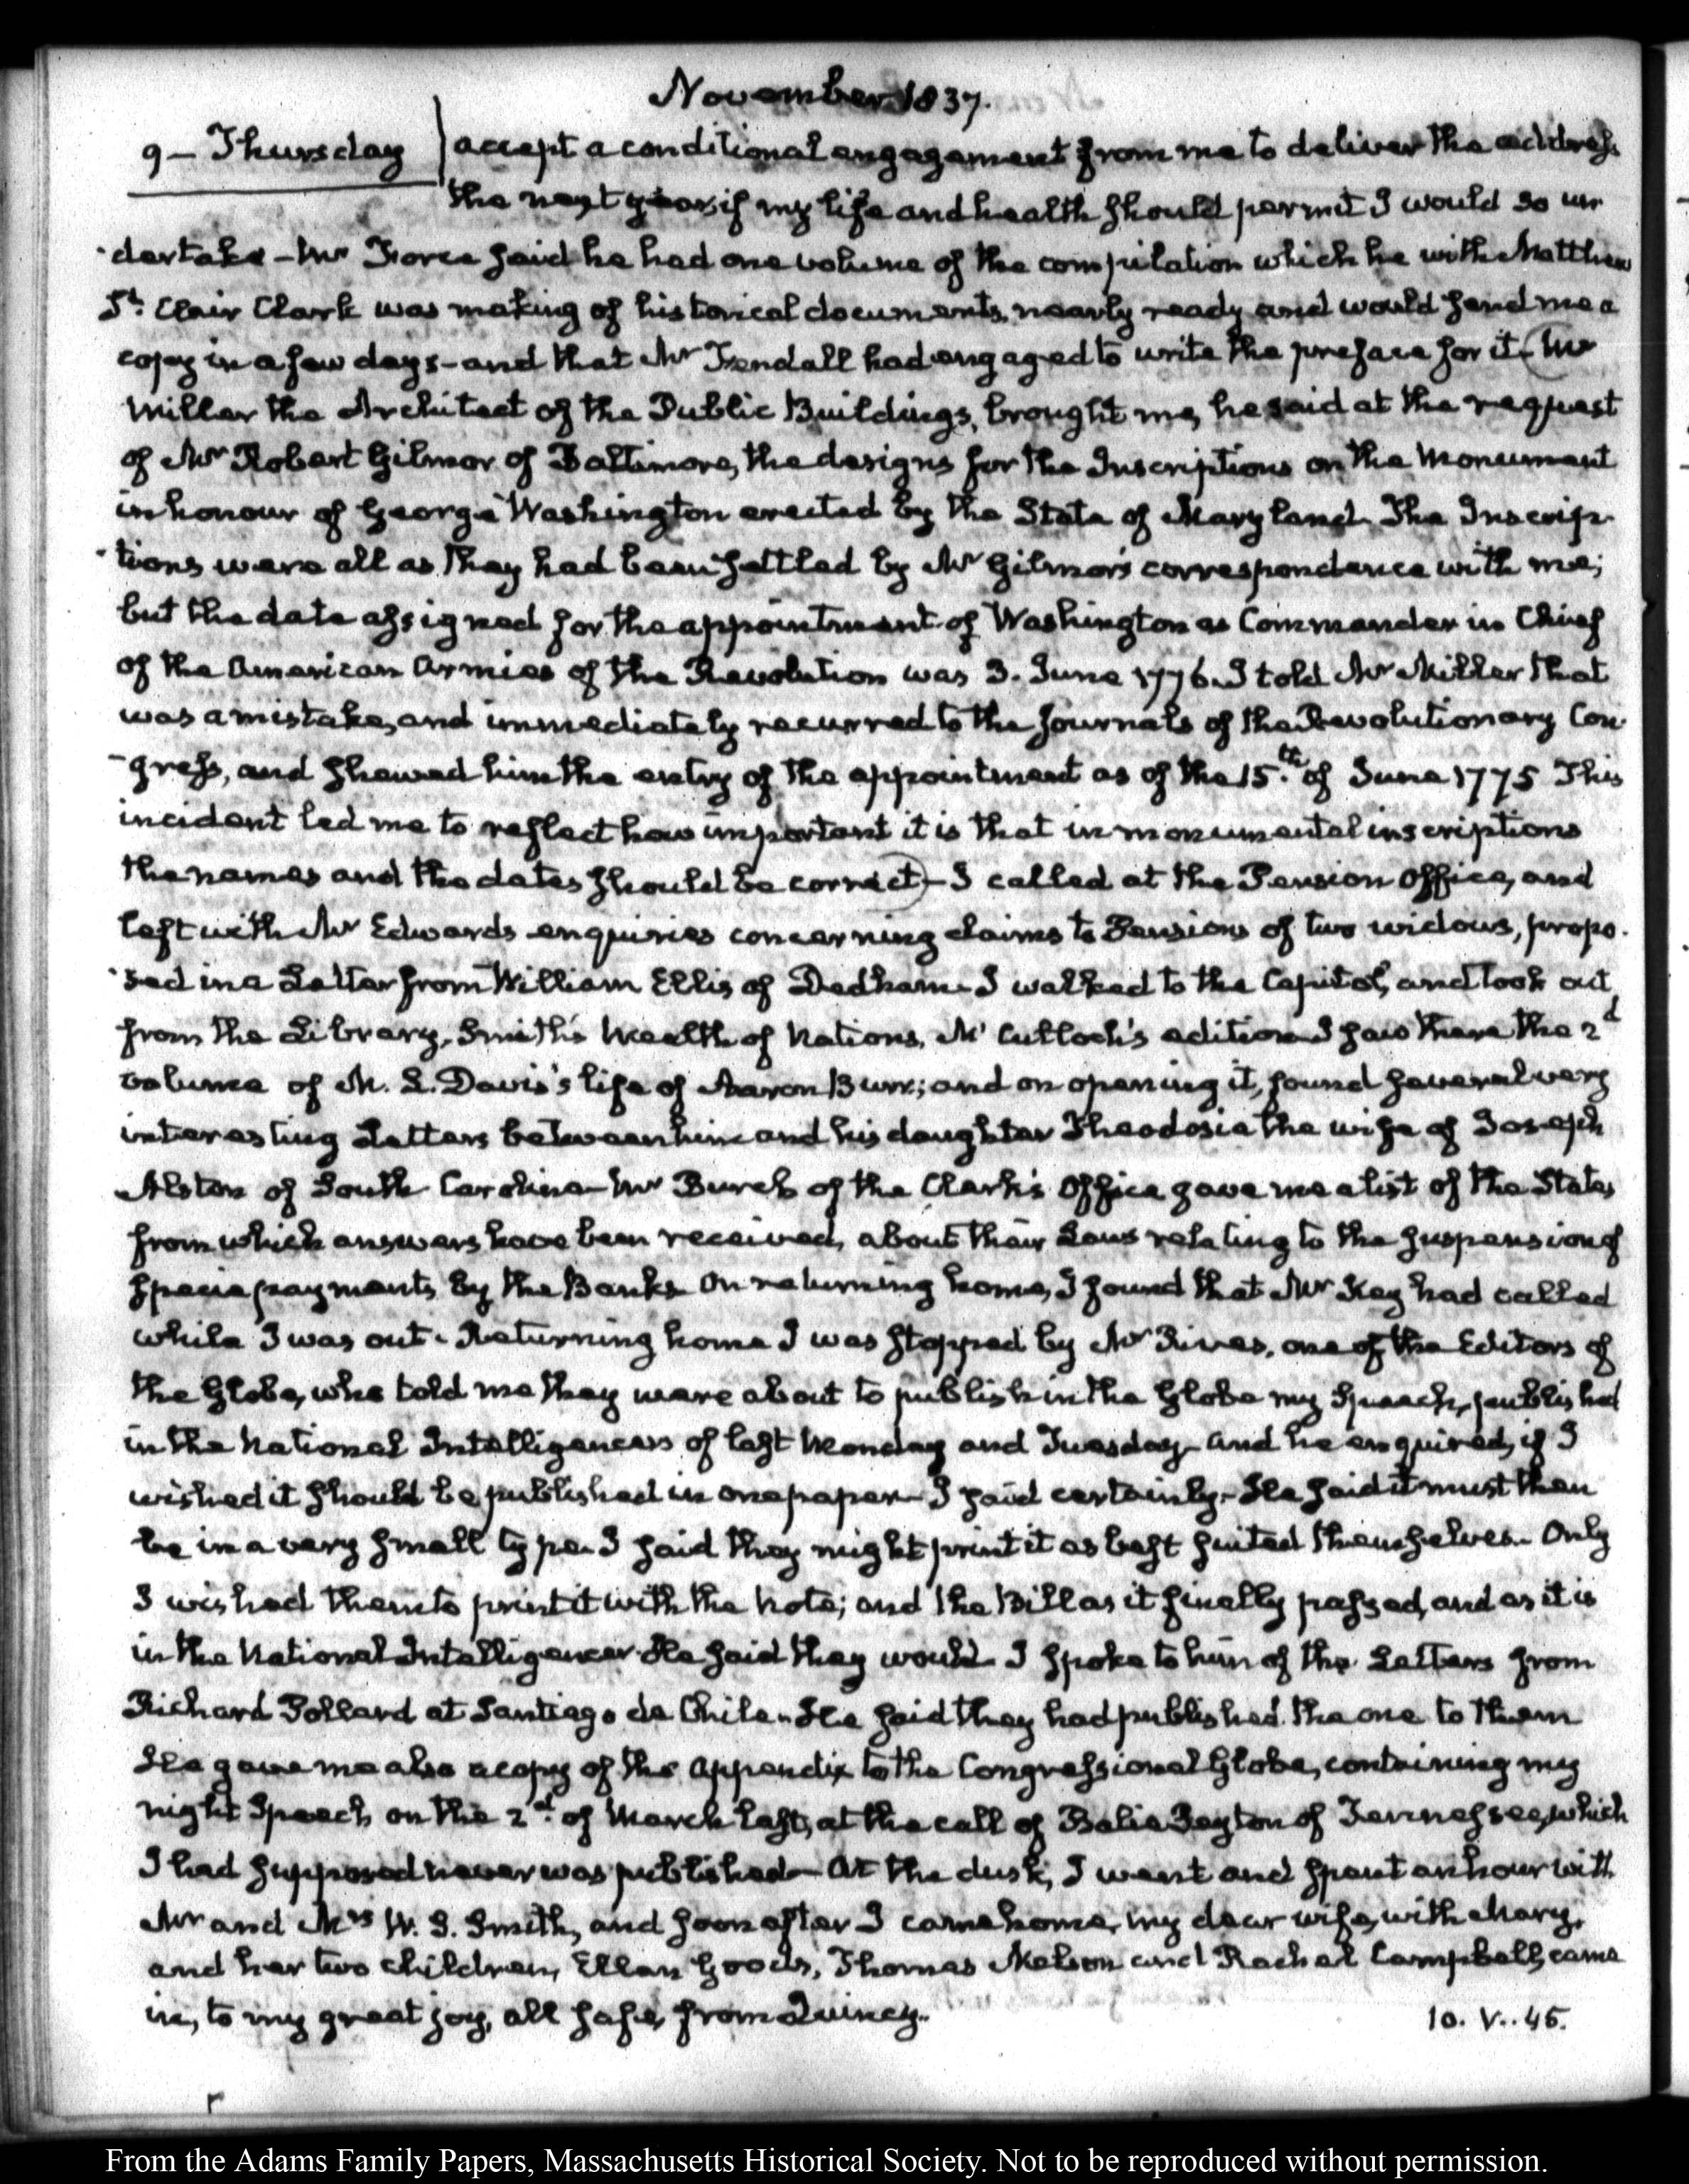 November 1837.
9 – Thursday | accept a conditional engagement from me to deliver the address
the next year if my life and health should permit I would so un
-dertake – Mr Force said he had one volume of the compilation which he with Matthew
St. Clair Clark was making of historical documents, nearly ready and would send me a
copy in a few days – and that Mr Kendall had engaged to write the preface for it – (Mr
Miller the Architect of the Public Buildings, brought me, he said at the request
of Mr Robert Gilmor of Baltimore, the designs for the Inscriptions on the Monument
in honour of George Washington erected by the State of Maryland. The Inscrip-
-tions were all as they had been settled by Mr Gilmor's correspondence with me;
but the date assigned for the appointment of Washington as Commander in Chief
of the American Armies of the Revolution was 3. June 1776. I told Mr Miller that
was a mistake, and immediately recurred to the Journals of the Revolutionary Con-
-gress, and shewed him the entry of the appointment as of the 15.th of June 1775 This
incident led me to reflect how important it is that in monumental inscriptions
the names and the dates should be correct) – I called at the Pension Office, and
left with Mr Edwards enquiries concerning claims to Pensions of two widows, propo-
-sed in a Letter from William Ellis of Dedham. I walked to the Capitol, and took out
from the Library, Smith's Wealth of Nations, McCulloch's edition. I saw there the 2d
volume of M. L. Davis's life of Aaron Burr; and on opening it, found several very
interesting Letters between him and his daughter Theodosia the wife of Joseph
Alston of South Carolina – Mr Burch of the Clerk's Office gave me a list of the States
from which answers have been received, about their Laws relating to the suspension of
specie payments by the Banks. On returning home, I found that Mr Key had called
while I was out – Returning home I was stopped by Mr Rives, one of the Editors of
the Globe, who told me they were about to publish in the Globe my Speech, published
in the National Intelligencers of last Monday and Tuesday – and he enquired, if I
wished it should be published in one paper – I said certainly – He said it must then
be in a very small type. I said they might print it as best suited themselves – Only
I wished them to print it with the Note; and the Bill as it finally passed, and as it is
in the National Intelligencer. He said they would. I spoke to him of the Letters from
Richard Pollard at Santiago de Chile – He said they had published the one to them
He gave me also a copy of the Appendix to the Congressional Globe, containing my
night Speech on the 2d. of March last, at the call of Balie Peyton of Tennessee, which
I had supposed never was published – At the dusk, I went and spent an hour with
Mr and Mrs W. S. Smith, and soon after I came home, my dear wife, with Mary,
and her two children, Ellen Goods, Thomas Nelson and Rachel Campbell, came
in, to my great joy, all safe, from Quincy.
10. V..45.
From the Adams Family Papers, Massachusetts Historical Society. Not to be reproduced without permission.